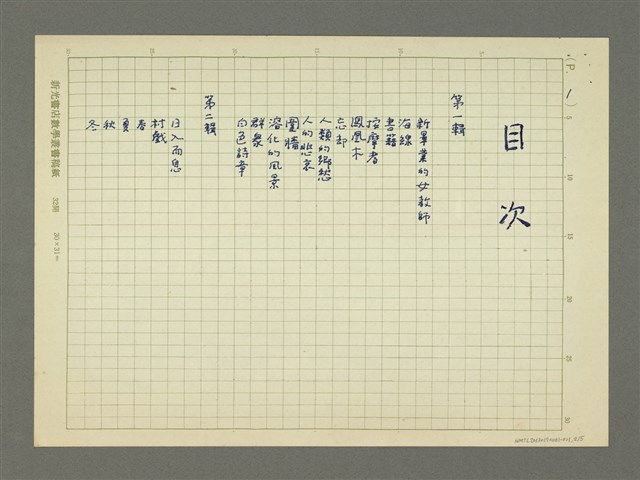 (P. 1)
目次
第一輯
新畢業的女教師
海線
書籍
按摩者
鳳凰木
忘却
人類的鄉愁
人的悲哀
圍牆
溶化的風景
群衆
白色詩章
第二輯
日入而息
村戲
春
夏
秋
冬
新光書店數學叢書稿紙 30×31=
5
10
15
20
25
30